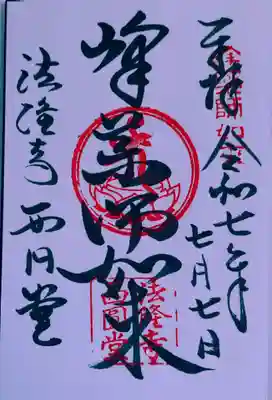 奉拝 令和七年
七月七日
峰薬师如来
法隆寺 西円堂
法隆寺
西圓堂